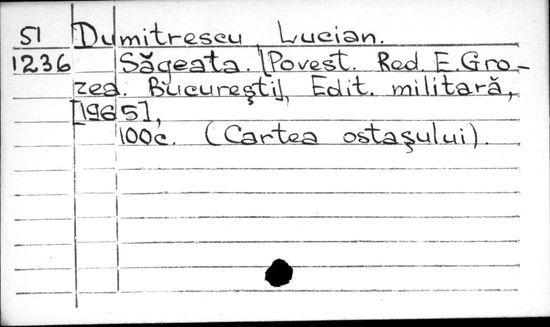 SI Dumitrescu Lucian.
1236 Săgeata. [Povest. Red. E. Gro-
zea. Bucureşti], Edit. militară,
[1965],
100c. (Cartea ostaşului).